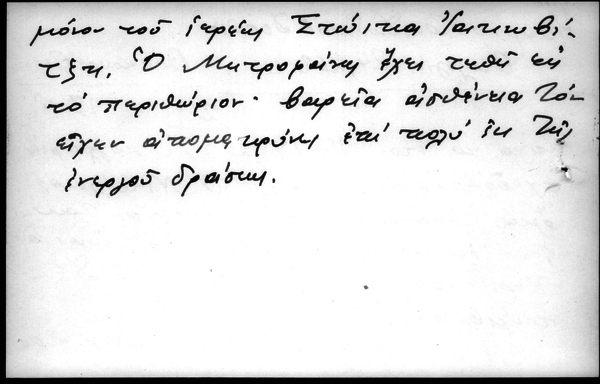 μόνον τοῦ ἱερέως Στώϊκα Ἰακωβί-
τζη. Ὁ Μητρομάνης ἔχει τεθῆ εἰς
τὸ περιθώριον· βαρεῖα ἀσθένεια τὸν
εἶχεν ἀπομακρύνει ἐπὶ πολὺ ἐκ τῆς
ἐνεργοῦ δράσεως.